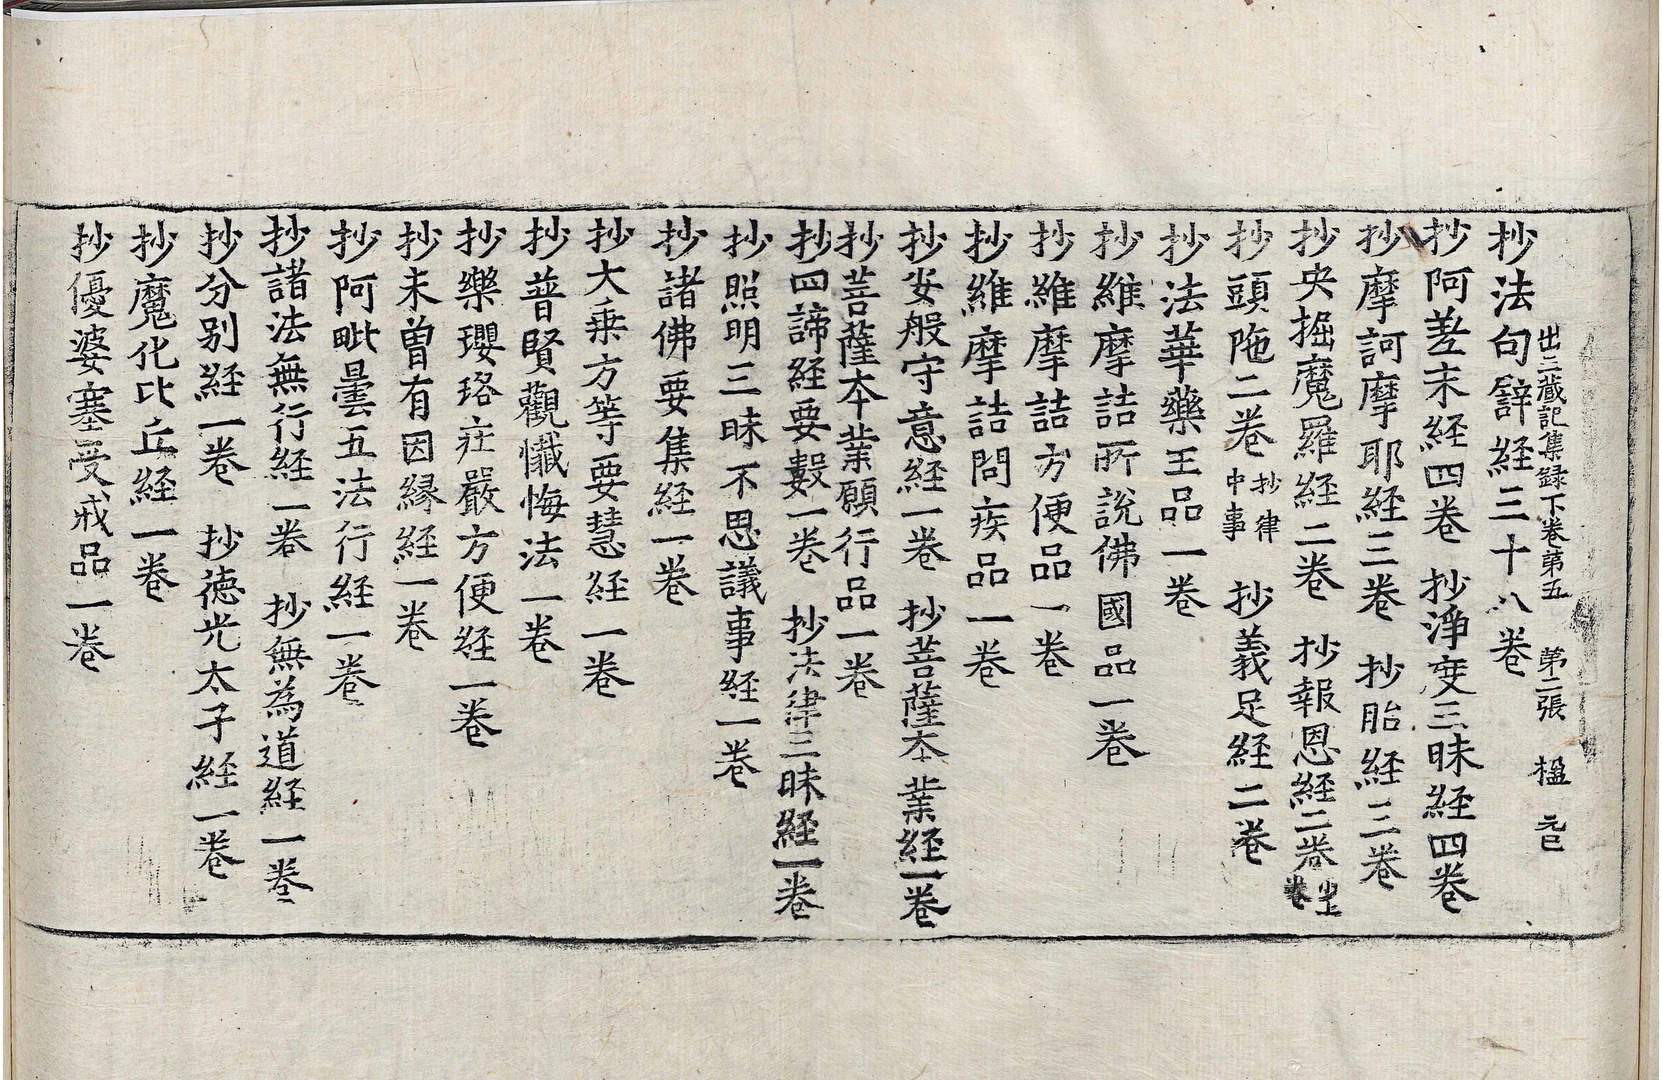 出三藏記集録下卷第五 第二張 楹 元巳
抄法句譬経三十八卷
抄阿差末経四卷 抄淨度三昧経四卷
抄摩訶摩耶経三卷 抄胎経三卷
抄央掘魔羅経二卷 抄報恩経二卷
抄頭陁二卷 抄律中事 抄義足経二卷
抄法華藥王品一卷
抄維摩詰所說佛國品一卷
抄維摩詰方便品一卷
抄維摩詰問疾品一卷
抄安般守意経一卷 抄菩薩本業経一卷
抄菩薩本業願行品一卷
抄四諦経要數一卷 抄法律三昧経一卷
抄照明三昧不思議事経一卷
抄諸佛要集経一卷
抄大乗方等要慧経一卷
抄普賢觀懺悔法一卷
抄樂瓔珞莊嚴方便経一卷
抄未曽有因縁経一卷
抄阿毗曇五法行経一卷
抄諸法無行経一卷 抄無為道経一卷
抄分別経一卷 抄德光太子経一卷
抄魔化比丘経一卷
抄優婆塞受戒品一卷